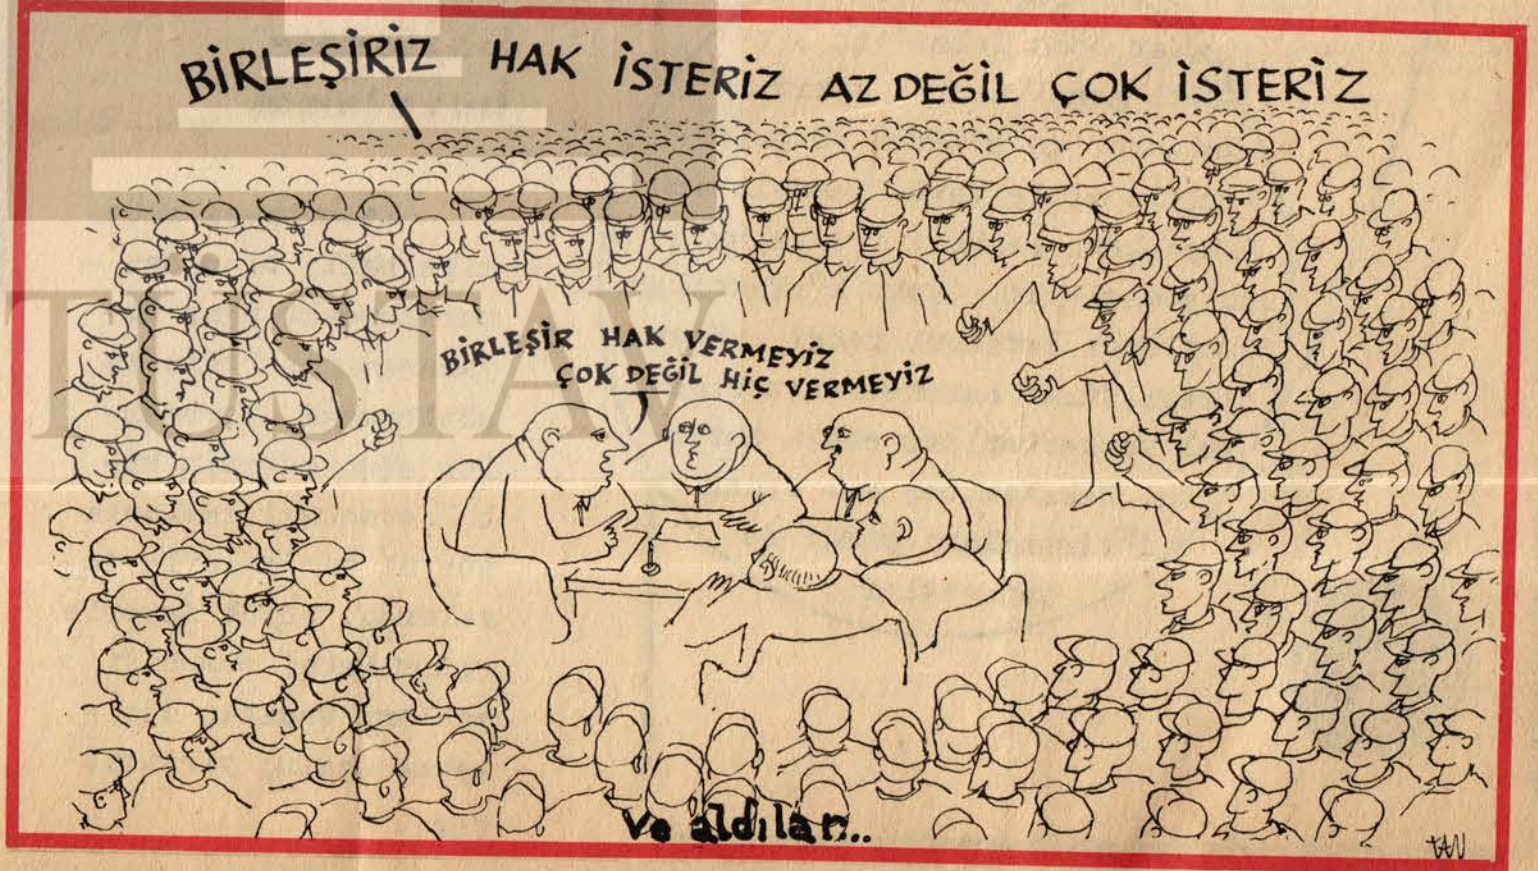 BİRLEŞİRİZ HAK İSTERİZ AZ DEĞİL ÇOK İSTERİZ
TÜSTAV
BİRLEŞİR HAK VERMEYİZ
ÇOK DEĞİL HİÇ VERMEYİZ
ve aldılar..
TAN